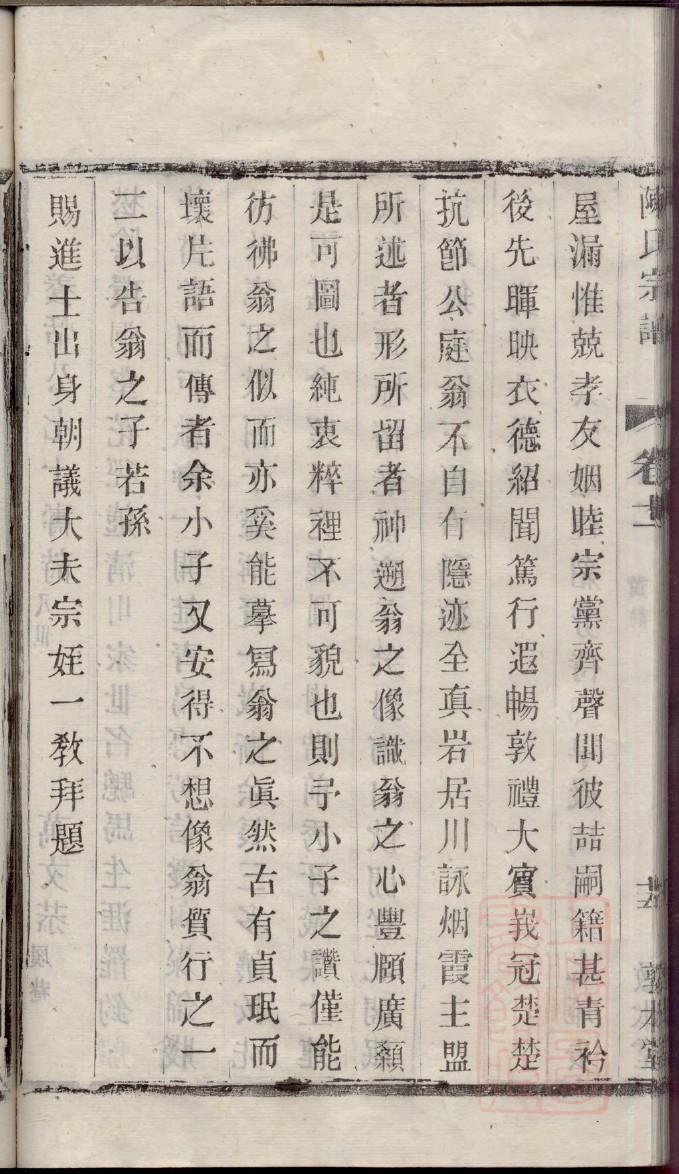 陳氏宗譜 卷十二
屋漏惟兢孝友姻睦宗黨齊聲聞彼喆嗣籍甚青衿
後先暉映衣德紹聞篤行遐暢敦禮大賓峩冠楚楚
抗節公庭翁不自有隱迹全真岩居川詠烟霞主盟
所述者形所留者神遡翁之像識翁之心豐頤廣顙
是可圖也純衷粹裡不可貌也則予小子之讚僅能
彷彿翁之似而亦奚能摹寫翁之眞然古有貞珉而
壞片語而傳者余小子又安得不想像翁質行之一
二以告翁之子若孫
賜進士出身朝議大夫宗姪一教拜題